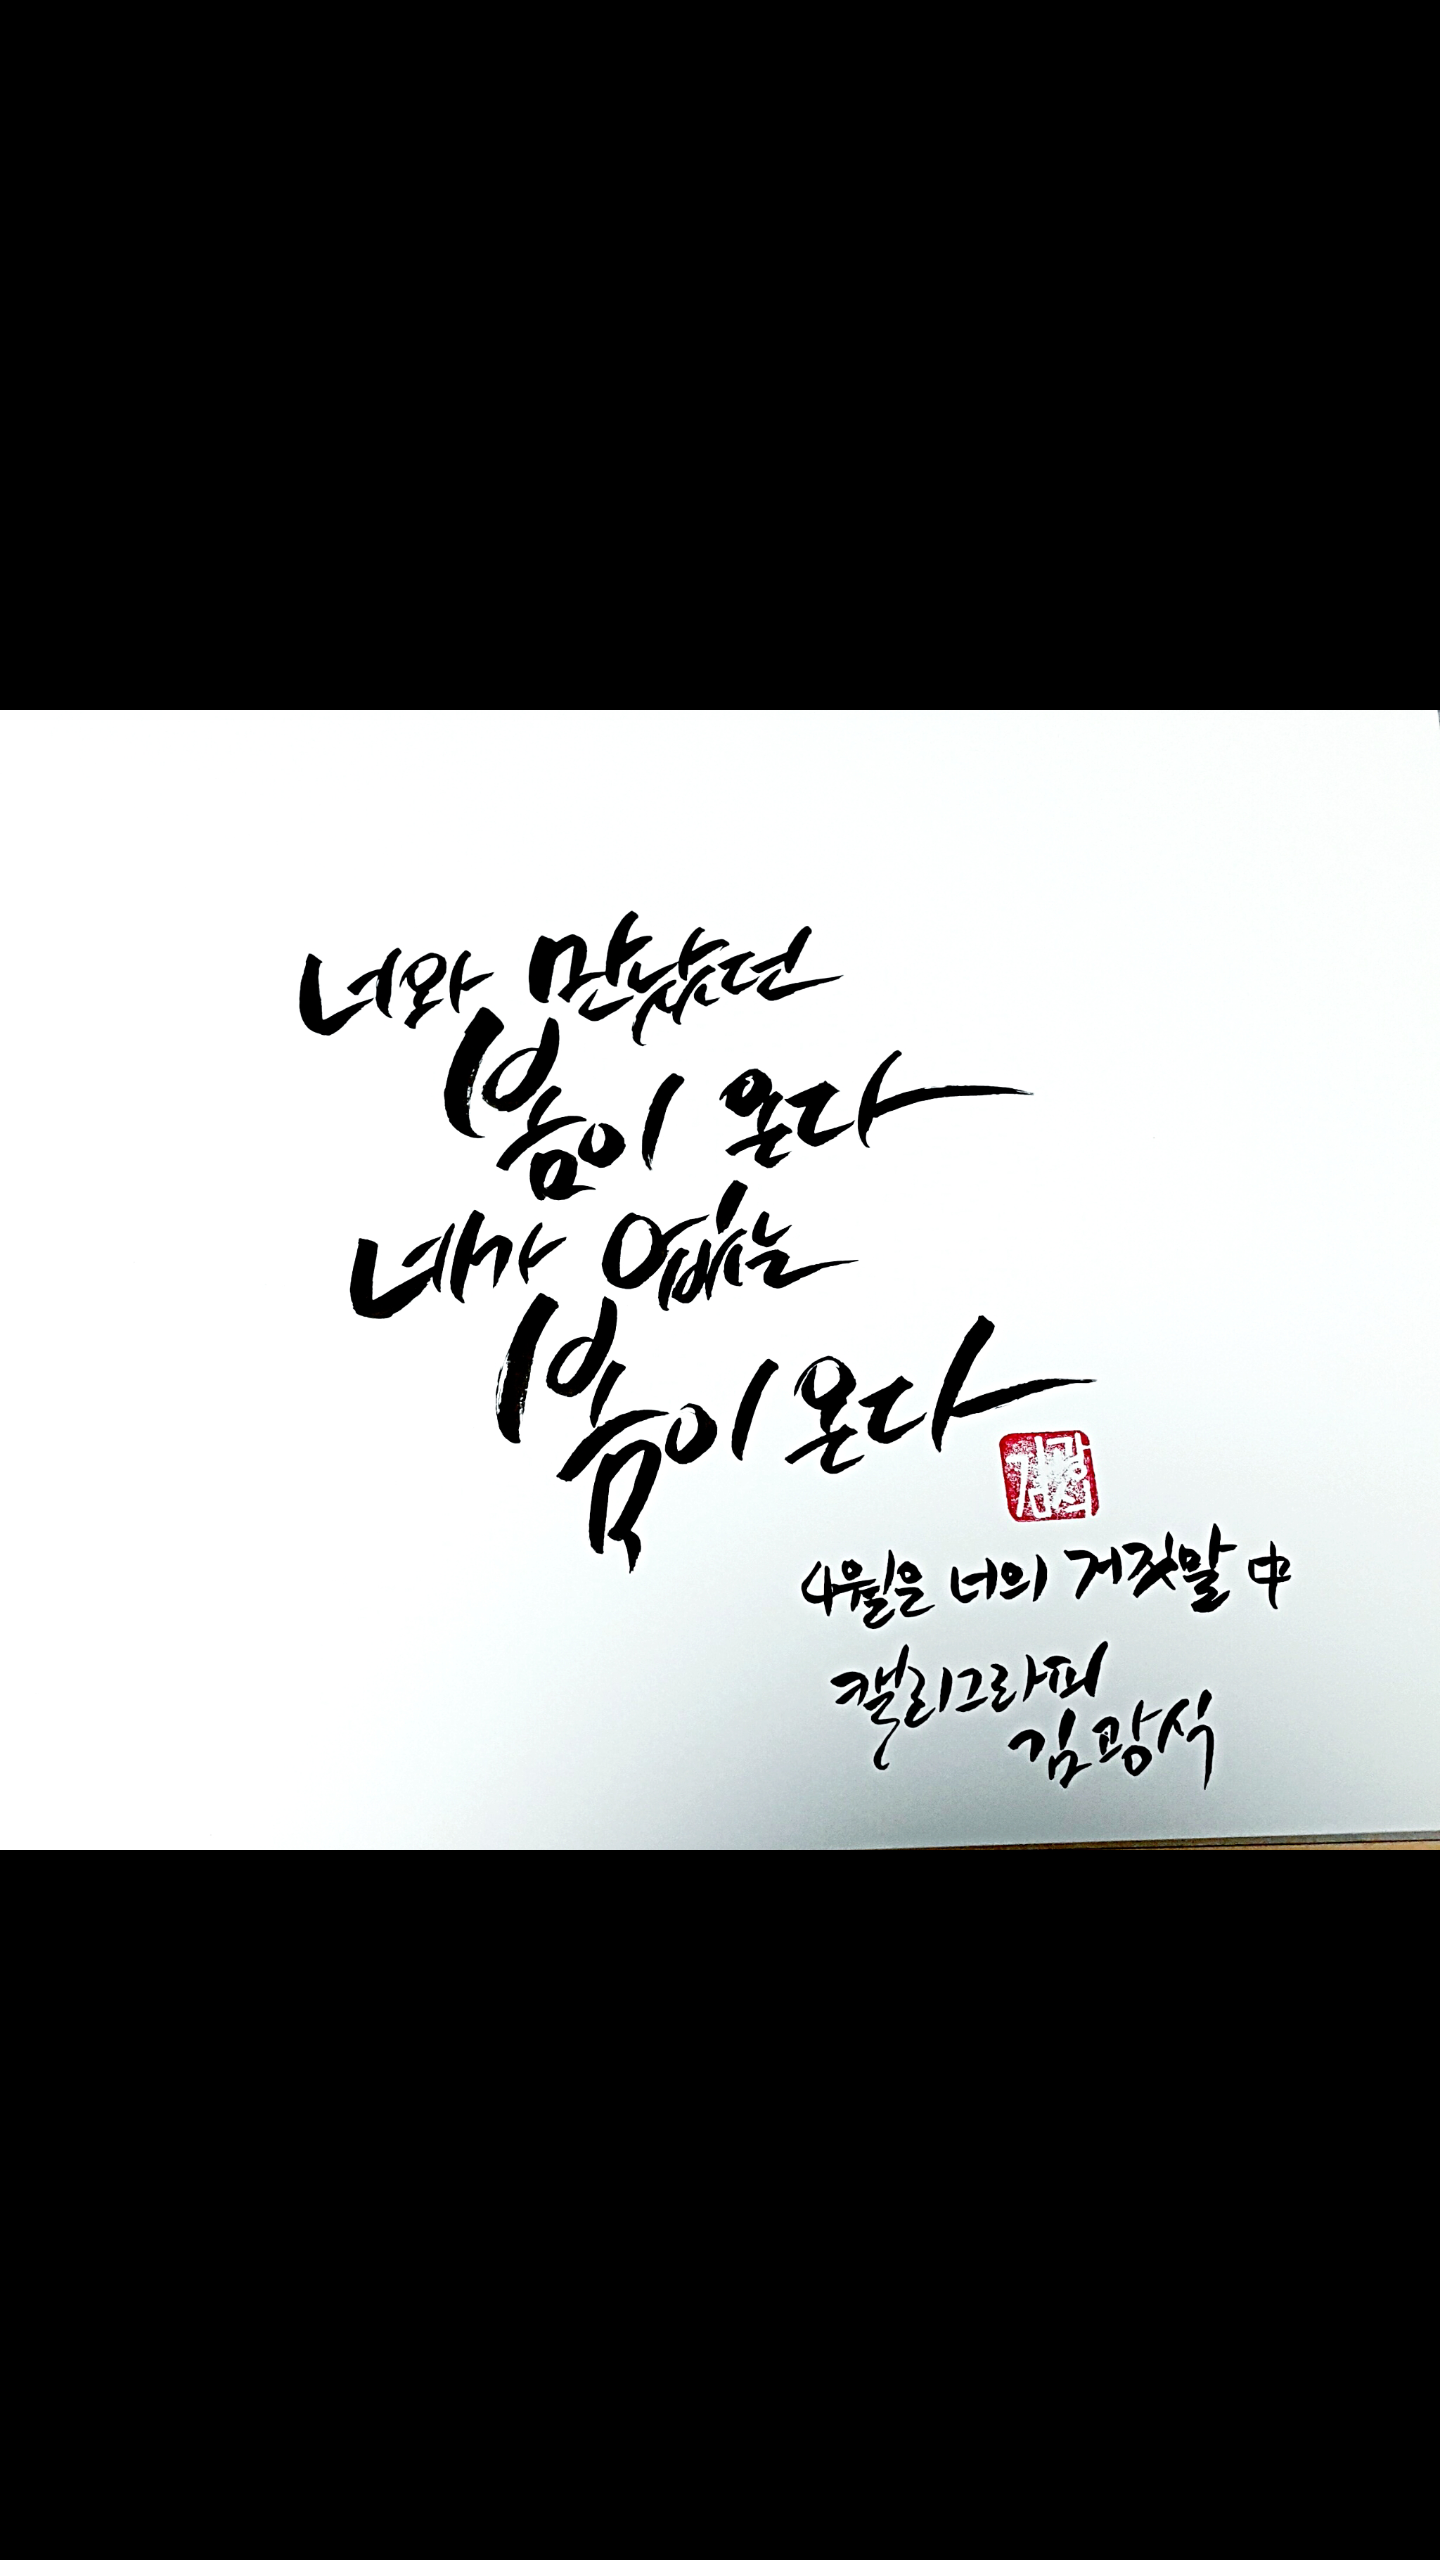 너와 만났던
봄이 온다
네가 없는
봄이 온다
김광식
4월은 너의 거짓말 中
캘리그라피
김광식